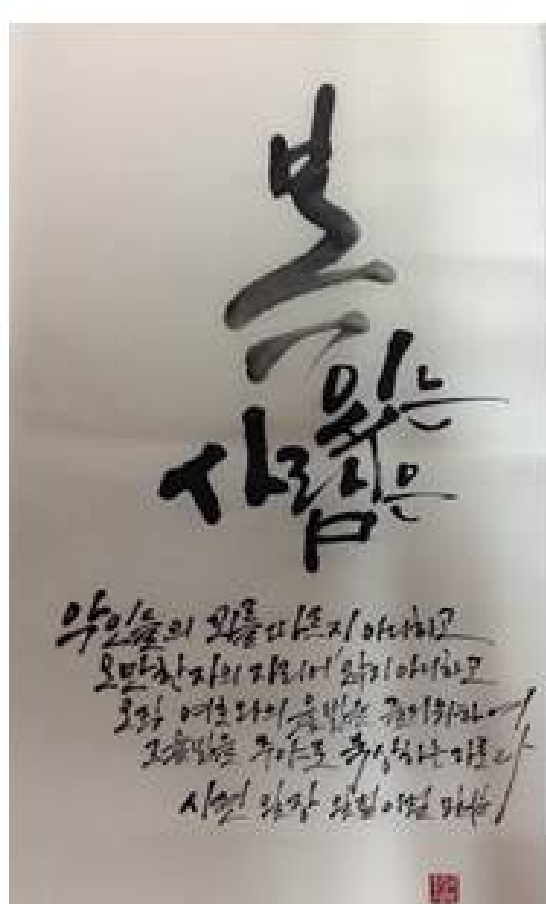 복
있는
사람은
악인들의 꾀를 따르지 아니하고
오만한 자의 자리에 앉지 아니하고
오직 여호와의 율법을 즐거워하여
그 율법을 주야로 묵상하는 자로다
시편 일장 일절 이절 말씀